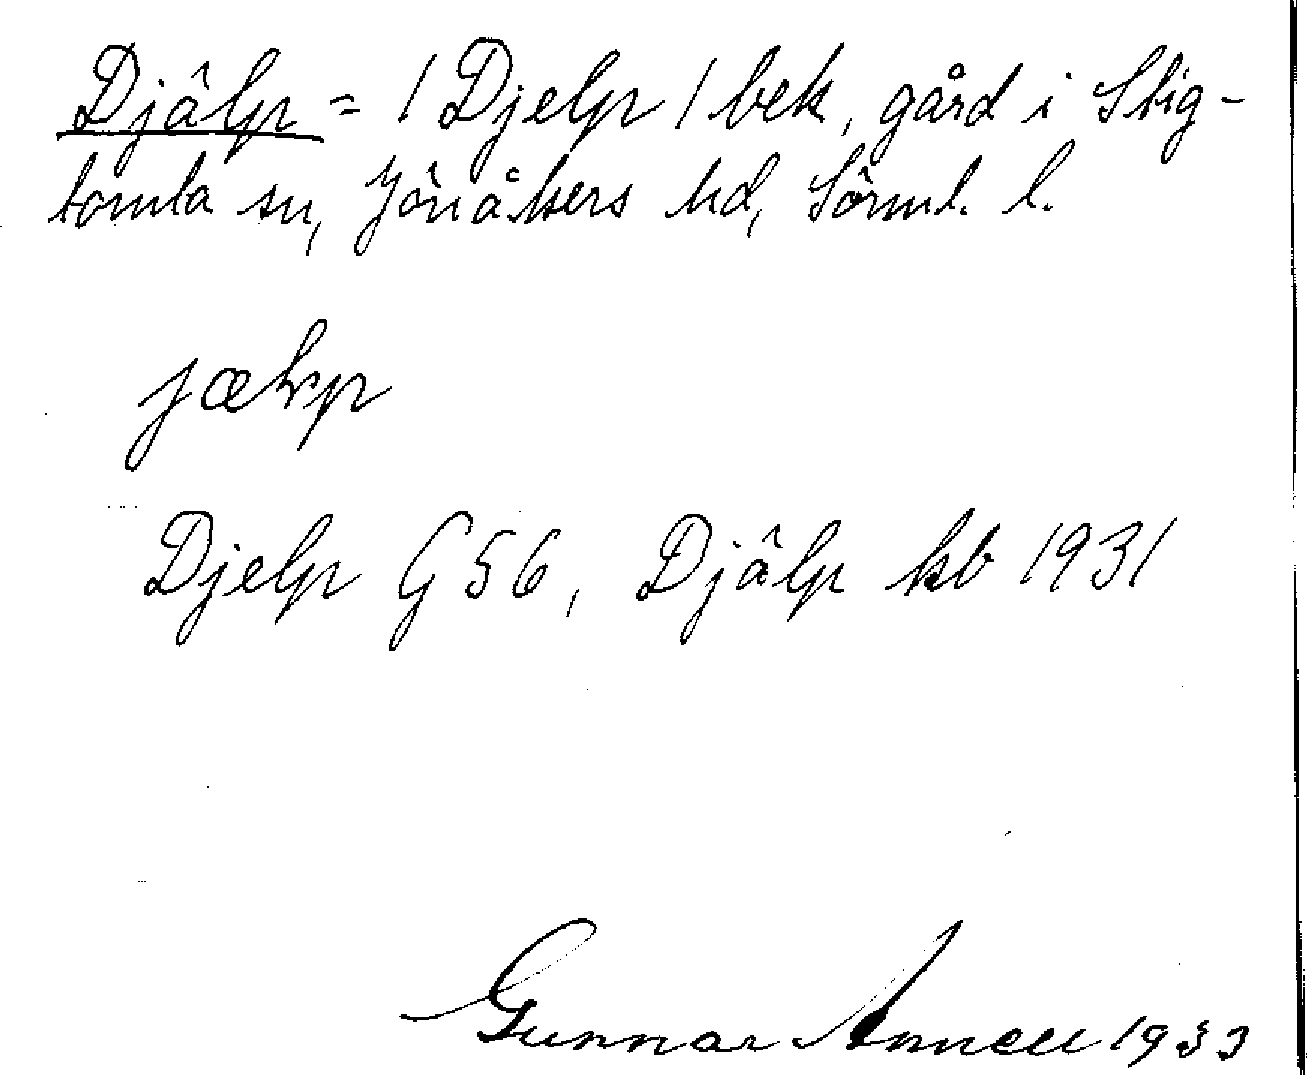 Djälp = / Djelp / bek, gård i Stig-
tomta sn, Jönåkers hd, Sörml. l.
jælvp
Djelp G 56, Djälp kb 1931
Gunnar Annell 1933